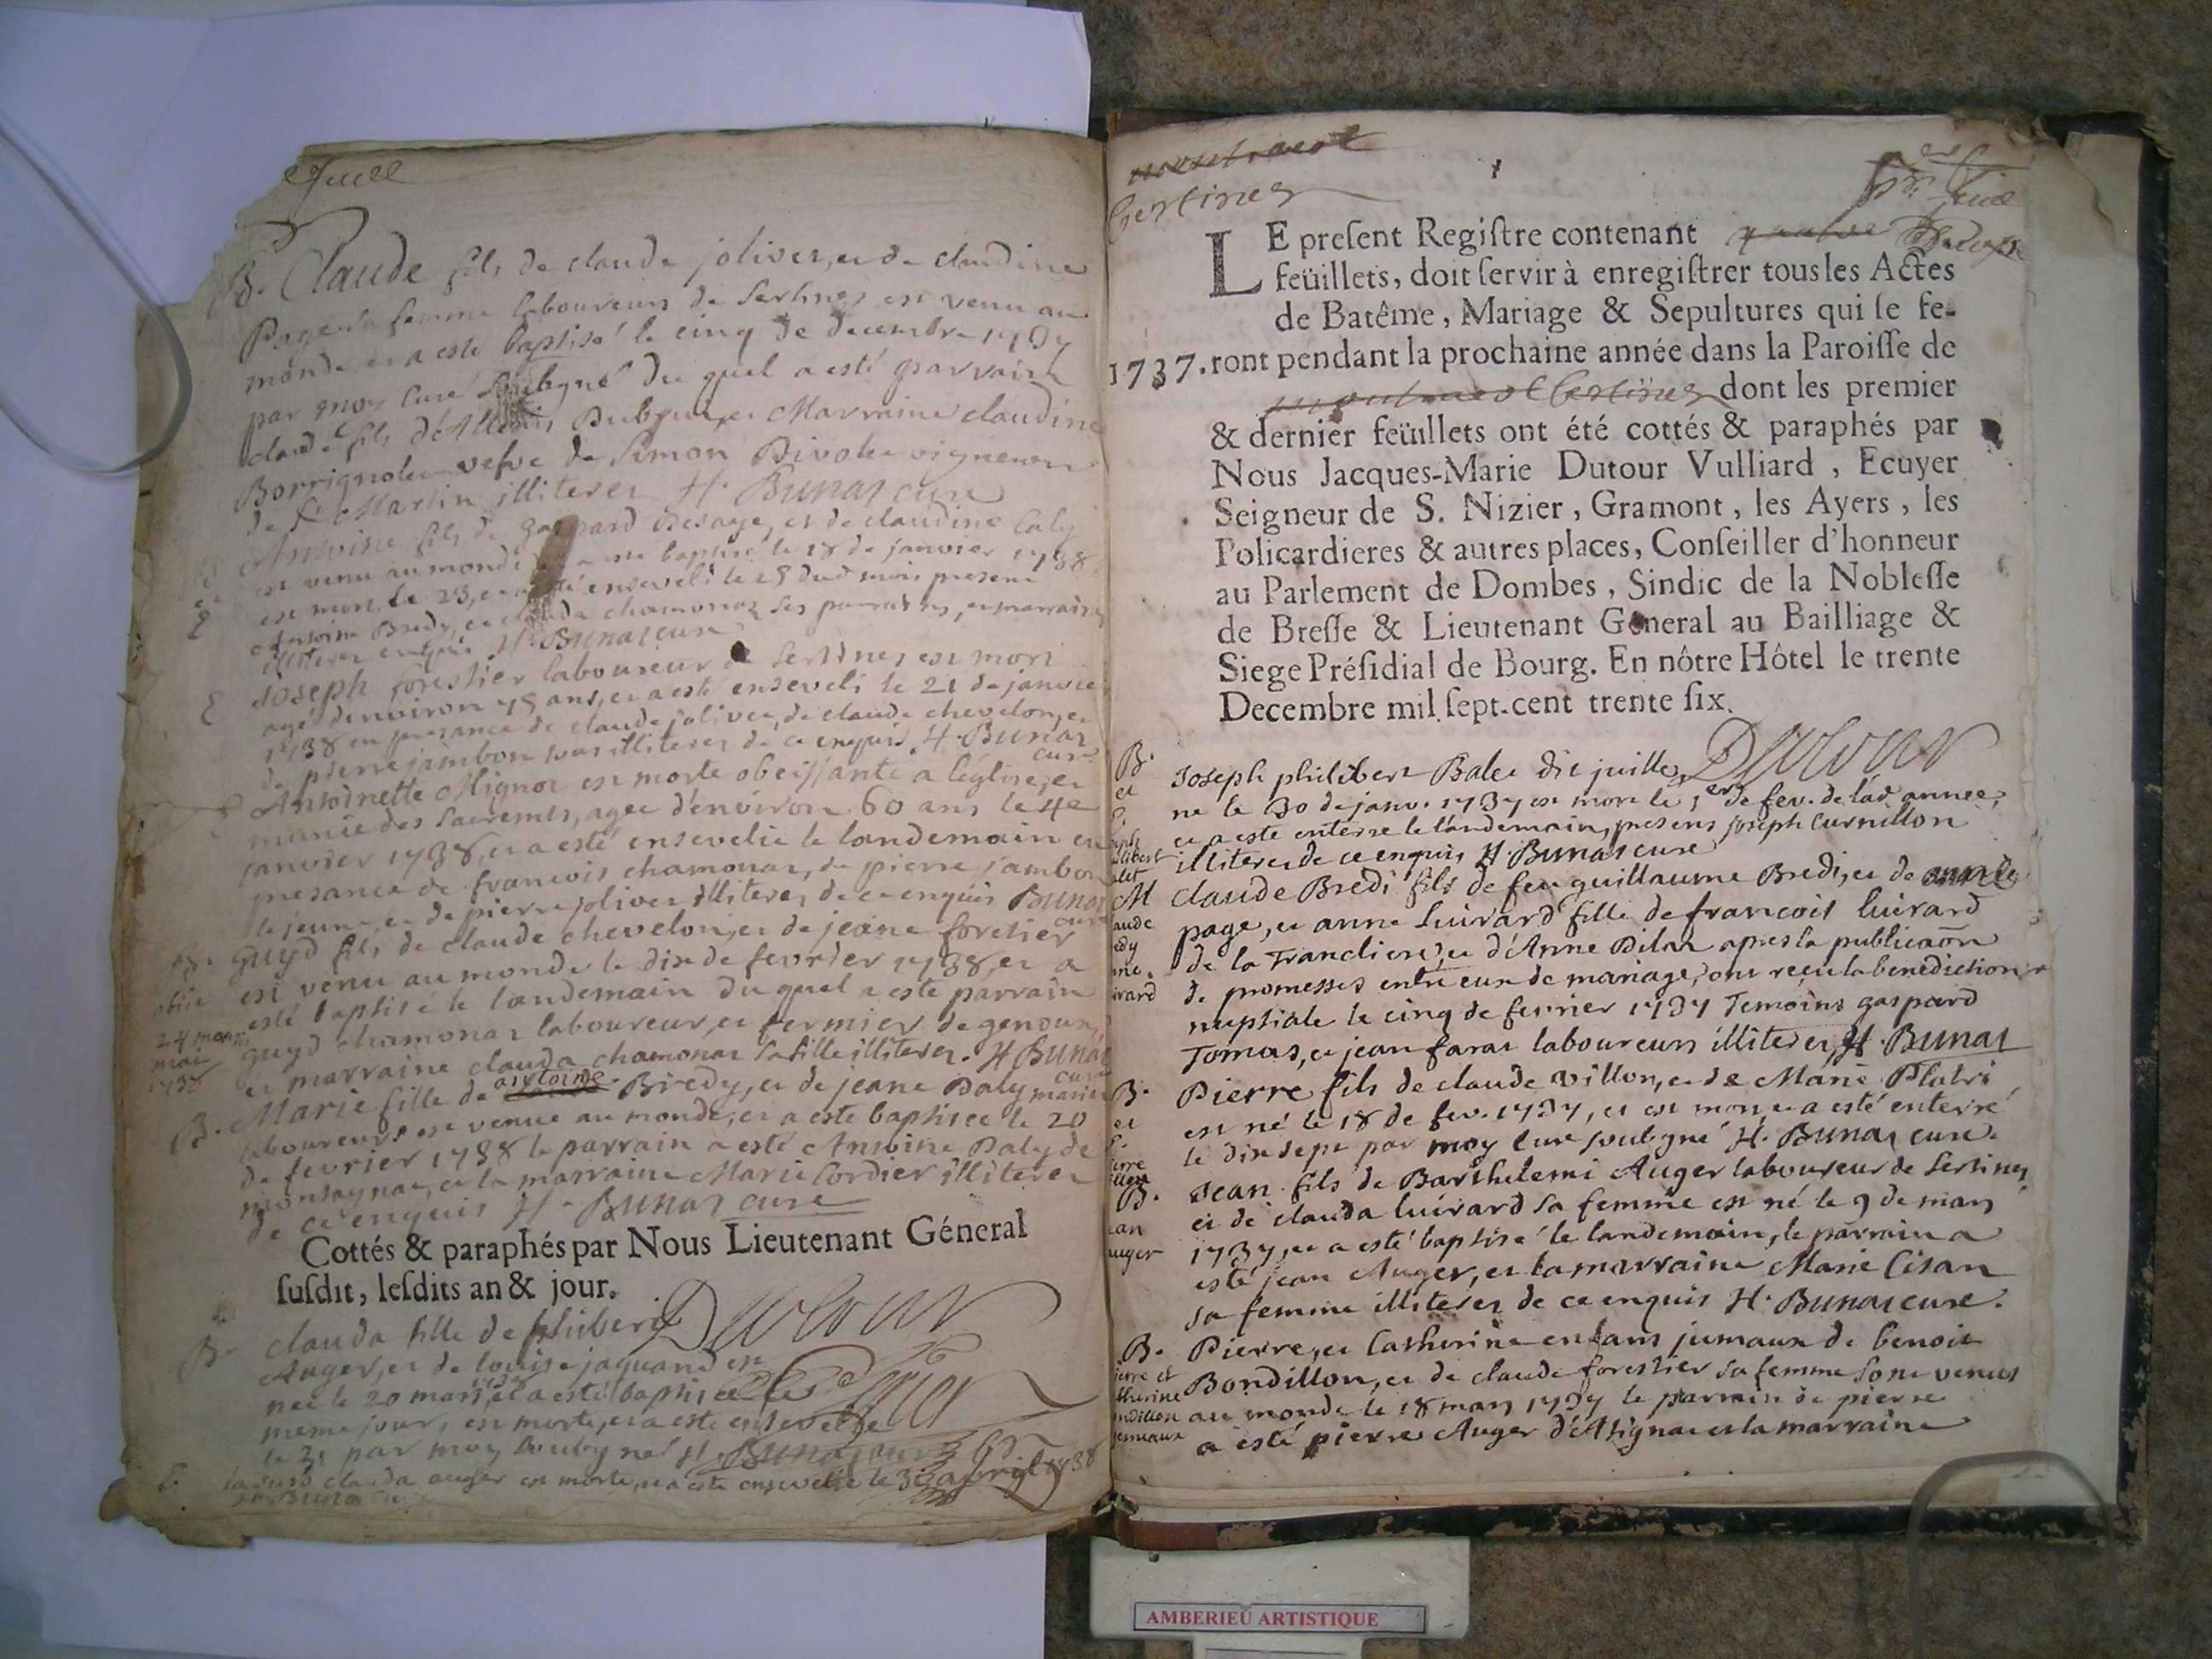 feuille
B. Claude fils de claude jolivet, et de claudine
Page sa femme laboureurs de Sertines est venu au
monde, et a esté baptisé le cinq de decembre 1737
par moy Curé Soubsigné du quel a esté parrain
claude fils
Dubpui, et Marraine claudine
Borrignolet vefve de Simon Rivolet vigneron
de St Martin illiteres H. Bunar cure
Antoine fils de gaspard Mesaye, et de claudine Caly
est venu au monde et a esté baptisé le 18 de janvier 1738
est mort le 23, et a été enseveli le 25 dud mois present
Antoine Bredy, et clauda chamonaz ses parrain, et marraine
illiteres enquis H. Bunar cure
E Joseph forestier laboureur de Sertines est mort
agé d'environ 75 ans, et a esté enseveli le 21 de janvier
1738 en presance de claude jolivet, de claude chevelon, et
de pierre jambon tous illiteres de ce enquis H. Bunar
cure
Antoinette Mignot est morte obeissante a l'église, et
munie des Sacremts, agee d'environ 60 ans le 4e
janvier 1738, et a esté ensevelie le landemain en
presance de francois chamonar, de pierre jambon
le jeune, et de pierre jolivet illiteres de ce enquis Bunar
cure
B. Guyd fils de claude chevelon, et de jeane foretier
est venu au monde le dix de fevrier 1738, et a
esté baptisé le landemain du quel a este parrain
guyd chamonar laboureur, et fermier de genoux,
et marraine clauda chamonar sa fille illiteres. H Bunar
cure
obiit
24
mai
1738
B. Marie fille de antoine Bredy, et de jeane Daly mariés
laboureurs est venue au monde, et a este baptisee le 20
de fevrier 1738 le parrain a esté Antoine Daly de
monsagnat, et la marraine Marie Cordier illiteres
de ce enquis H. Bunar cure
Cottés & paraphés par Nous Lieutenant Géneral
ſuſdit, leſdits an & jour.
B. clauda fille de philibert Dutour
Auger, et de louise jaquand est
nee le 20 mars, et a esté baptisee le
meme jour, est morte, et a este ensevelie
le 21 par moy Soubsigné H. Bunar cure
E. clauda auger est morte, et a este ensevelie le 3 avril 1738
Bunar cu
Sertines
LE preſent Regiſtre contenant quatre
feüillets, doit ſervir à enregiſtrer tous les Actes
de Batême, Mariage & Sepultures qui ſe fe-
1737. ront pendant la prochaine année dans la Paroiſſe de
Sertines dont les premier
& dernier feüillets ont été cottés & paraphés par
Nous Jacques-Marie Dutour Vulliard, Ecuyer
Seigneur de S. Nizier, Gramont, les Ayers, les
Policardieres & autres places, Conſeiller d'honneur
au Parlement de Dombes, Sindic de la Nobleſſe
de Breſſe & Lieutenant General au Bailliage &
Siege Préſidial de Bourg. En nôtre Hôtel le trente
Decembre mil ſept-cent trente ſix.
Dutour
B. et E. Joseph philibert Balet dit juillet
ne le 30 de janv. 1737 est mort le 1er de fev. de lad annee,
et a este enterre le landemain, presens joseph Curnillon
illiteres de ce enquis H. Bunar cure
M Claude Bredi fils de feu guillaume Bredi, et de anne
page, et anne luirard fille de francois luirard
de la Trancliere, et d'Anne Pilar apres la publicaōn
de promesses entre eux de mariage, ont reçu la benediction
nuptiale le cinq de fevrier 1737 Temoins gaspard
Tomas, et jean farar laboureurs illiteres, H. Bunar
B. et E. Pierre fils de claude Villon, et de Marie Platri
est né le 18 de fev. 1737, et est mort, et a esté enterré
le dix sept par moy cure soubsigné H. Bunar cure.
B. Jean fils de Barthelemi Auger laboureur de Sertines
et de clauda luirard sa femme est né le 9 de mars
1737, et a esté baptisé le landemain, le parrain a
esté jean Auger, et la marraine Marie Cisan
sa femme illiteres de ce enquis H. Bunar cure.
B. Pierre, et Catherine enfans jumaux de benoit
Bondillon, et de claude forestier sa femme sont venus
au monde le 18 mars 1737 le parrain de pierre
a esté pierre Auger d'Asignat et la marraine
AMBERIEU ARTISTIQUE